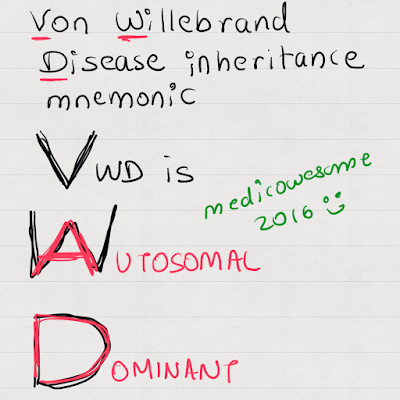 Von Willebrand
Disease inheritance
mnemonic
VWD is
medicowesome
2016
AUTOSOMAL
DOMINANT